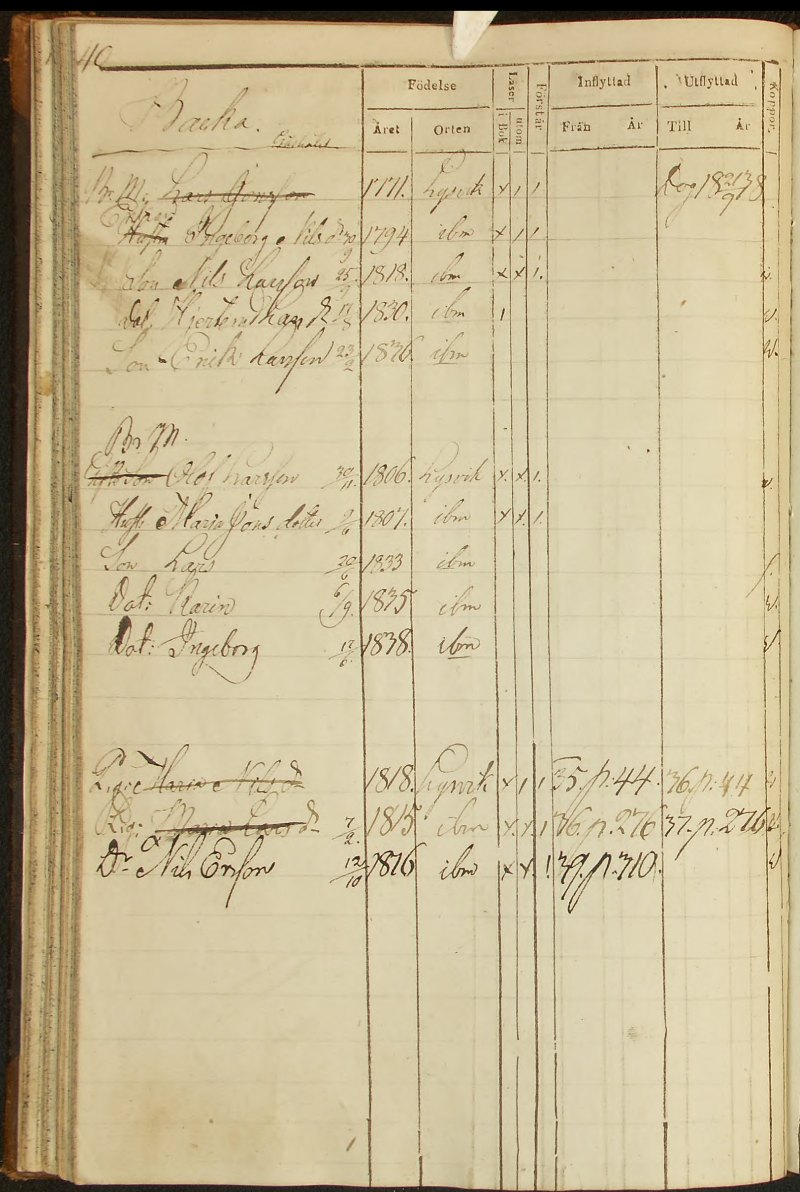 40
Födelse Läser Förstår Inflyttad Utflyttad Koppor.
Backa. Året Orten i Bok utom Från År Till År
Br. M: Lars Jonsson 1771. Lysvik x 1 1 Dog 18 21/9 38
Enkan
Hustru Ingeborg Nilsd 30/9 1794 ibm x 1 1
Son Nils Larsson 25/9 1818. ibm x x 1. v.
Dot. Kjerstin Larsd 17/8 1830. ibm 1 v.
Son Erik Larsson 23/2 1836. ibm v.
Br. M.
Olof Larsson 30/11 1806. Lysvik x. x. 1. v.
Hust. Maria Jons dotter 9/6 1807. ibm x x. 1.
Son Lars 1833 ibm
Dot: Karin 6/9. 1835 ibm v.
Dot: Ingeborg 1838. ibm v.
Pig: Maria Nilsd 1818. Lysvik x 1 1 35. p. 44. 36. p. 44 v
Pig: Maria Larsd 7/2. 1815 ibm x. x. 1 36. p. 276 37. p. 276 v.
Dr Nils Ersson 12/10 1816 ibm x x. 1. 39. p. 310. v